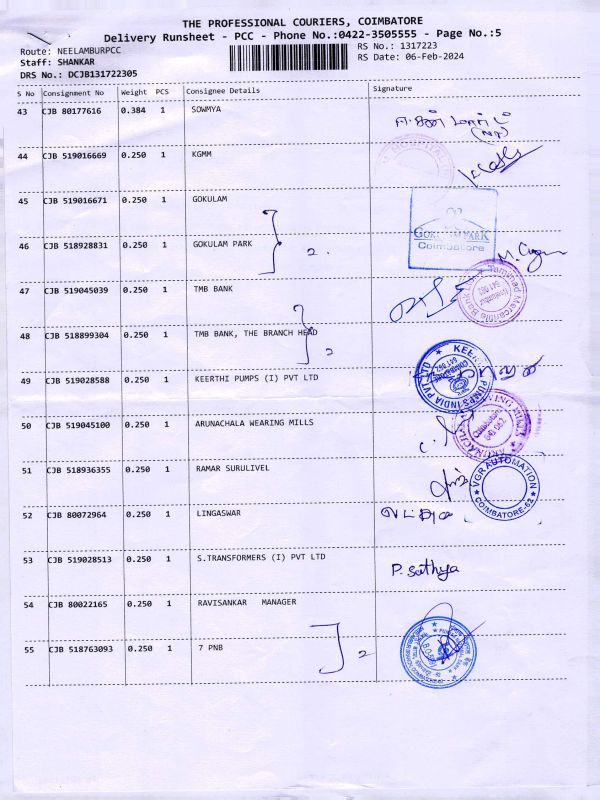 THE PROFESSIONAL COURIERS, COIMBATORE
Delivery Runsheet - PCC - Phone No.:0422-3505555 - Page No.:5
Route: NEELAMBURPCC
RS No.: 1317223
Staff: SHANKAR
RS Date: 06-Feb-2024
DRS No.: DCJB131722305
S No Consignment No Weight PCS Consignee Details Signature
43 CJB 80177616 0.384 1 SOWMYA
44 CJB 519016669 0.250 1 KGMM
45 CJB 519016671 0.250 1 GOKULAM
GOKULAM PARK
Coimbatore
46 CJB 518928831 0.250 1 GOKULAM PARK 2.
47 CJB 519045039 0.250 1 TMB BANK
48 CJB 518899304 0.250 1 TMB BANK, THE BRANCH HEAD 2
49 CJB 519028588 0.250 1 KEERTHI PUMPS (I) PVT LTD
50 CJB 519045100 0.250 1 ARUNACHALA WEARING MILLS
51 CJB 518936355 0.250 1 RAMAR SURULIVEL
VGR AUTOMATION
COIMBATORE-62
52 CJB 80072964 0.250 1 LINGASWAR
53 CJB 519028513 0.250 1 S.TRANSFORMERS (I) PVT LTD
P. Sathya
54 CJB 80022165 0.250 1 RAVISANKAR MANAGER
55 CJB 518763093 0.250 1 7 PNB 2